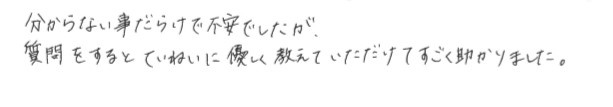 分からない事だらけで不安でしたが、
質問をするとていねいに優しく教えていただけてすごく助かりました。